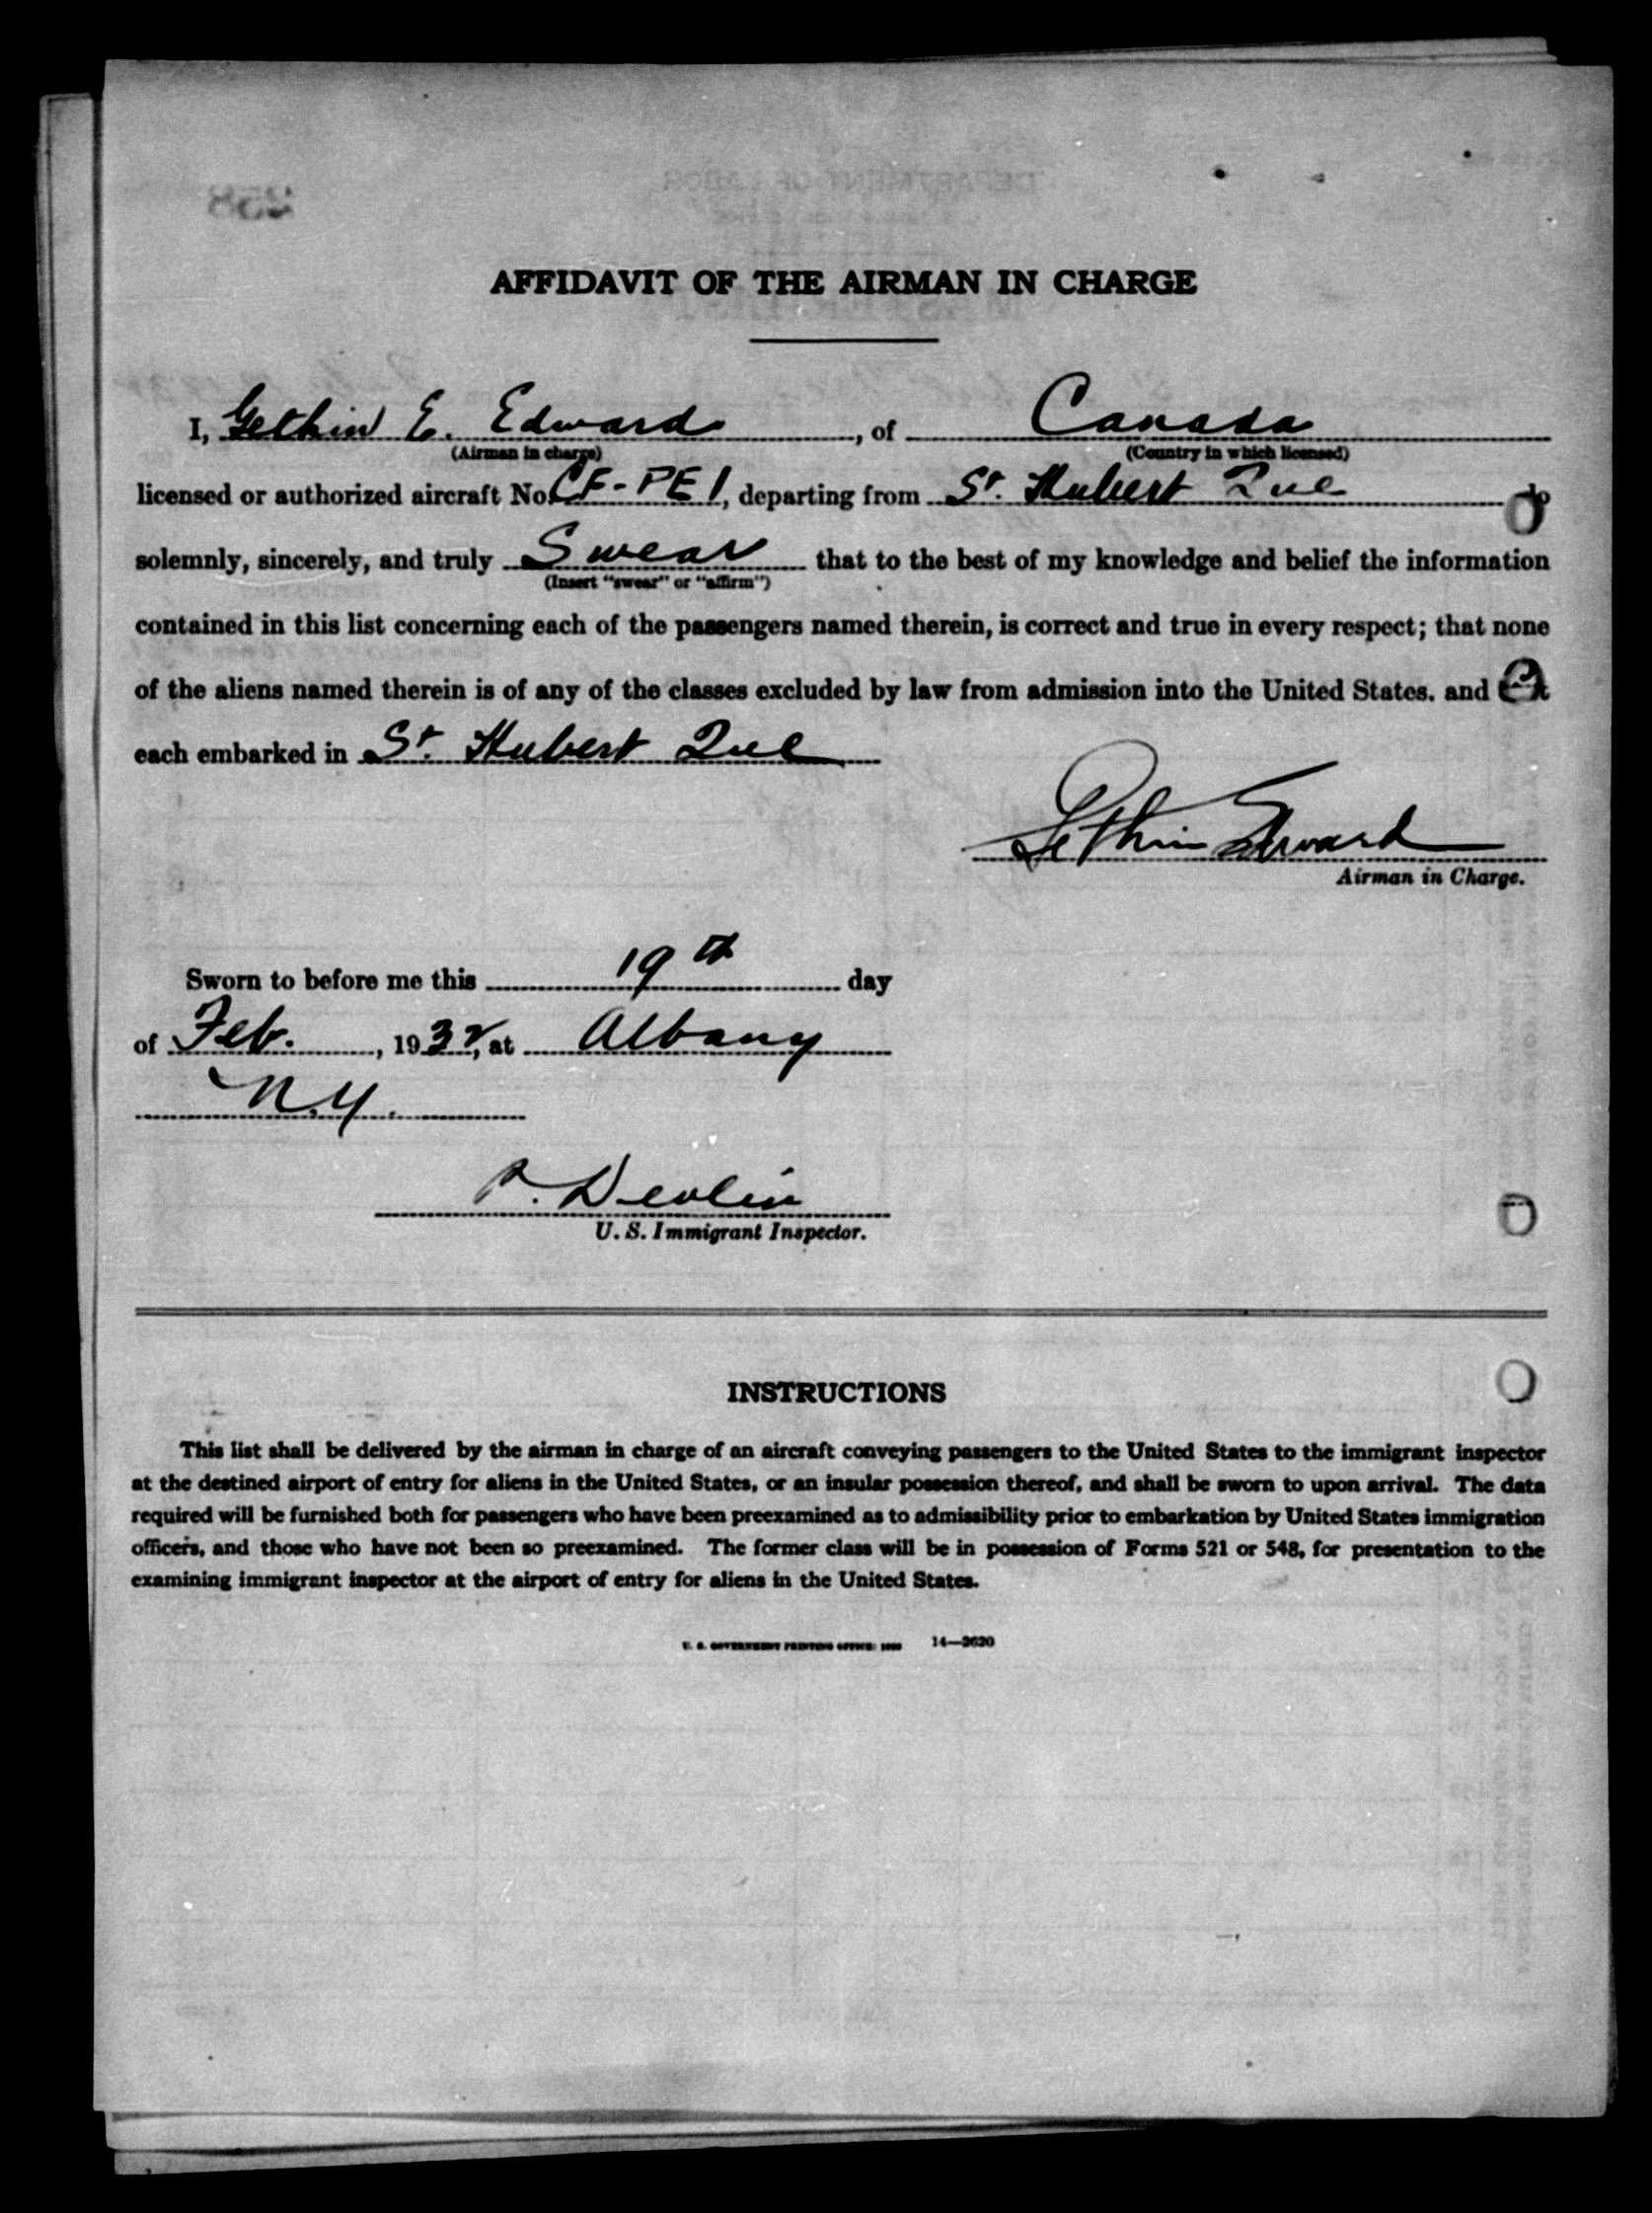 AFFIDAVIT OF THE AIRMAN IN CHARGE
I, Gethin E. Edward, of Canada
(Airman in charge) (Country in which licensed)
licensed or authorized aircraft No. CF-PEI, departing from St. Hubert Que do
solemnly, sincerely, and truly Swear that to the best of my knowledge and belief the information
(Insert "swear" or "affirm")
contained in this list concerning each of the passengers named therein, is correct and true in every respect; that none
of the aliens named therein is of any of the classes excluded by law from admission into the United States, and
each embarked in St. Hubert Que
Gethin Edward
Airman in Charge.
Sworn to before me this 19th day
of Feb., 1932, at Albany
N.Y.
Devlin
U. S. Immigrant Inspector.
INSTRUCTIONS
This list shall be delivered by the airman in charge of an aircraft conveying passengers to the United States to the immigrant inspector
at the destined airport of entry for aliens in the United States, or an insular possession thereof, and shall be sworn to upon arrival. The data
required will be furnished both for passengers who have been preexamined as to admissibility prior to embarkation by United States immigration
officers, and those who have not been so preexamined. The former class will be in possession of Forms 521 or 548, for presentation to the
examining immigrant inspector at the airport of entry for aliens in the United States.
U. S. GOVERNMENT PRINTING OFFICE: 14—2620